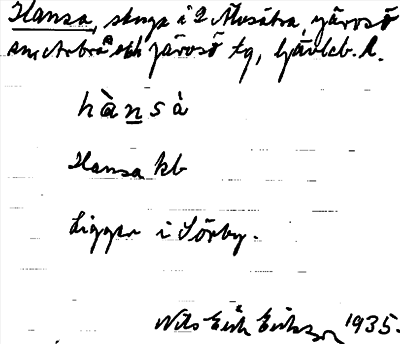 Hansa, stuga i 2 Älvsätra, Järvsö
sn, Arbrå och Järvsö tg, Gävleb. l.
hànsà
Hansa kb
Ligger i Sörby.
Nils Erik Eriksson 1935.